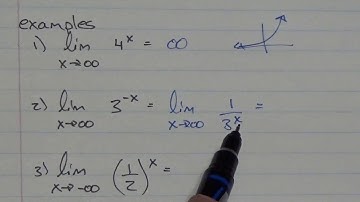 examples
1) lim x→∞ 4^x = ∞
2) lim x→∞ 3^-x = lim x→∞ 1/3^x =
3) lim x→-∞ (1/2)^x =